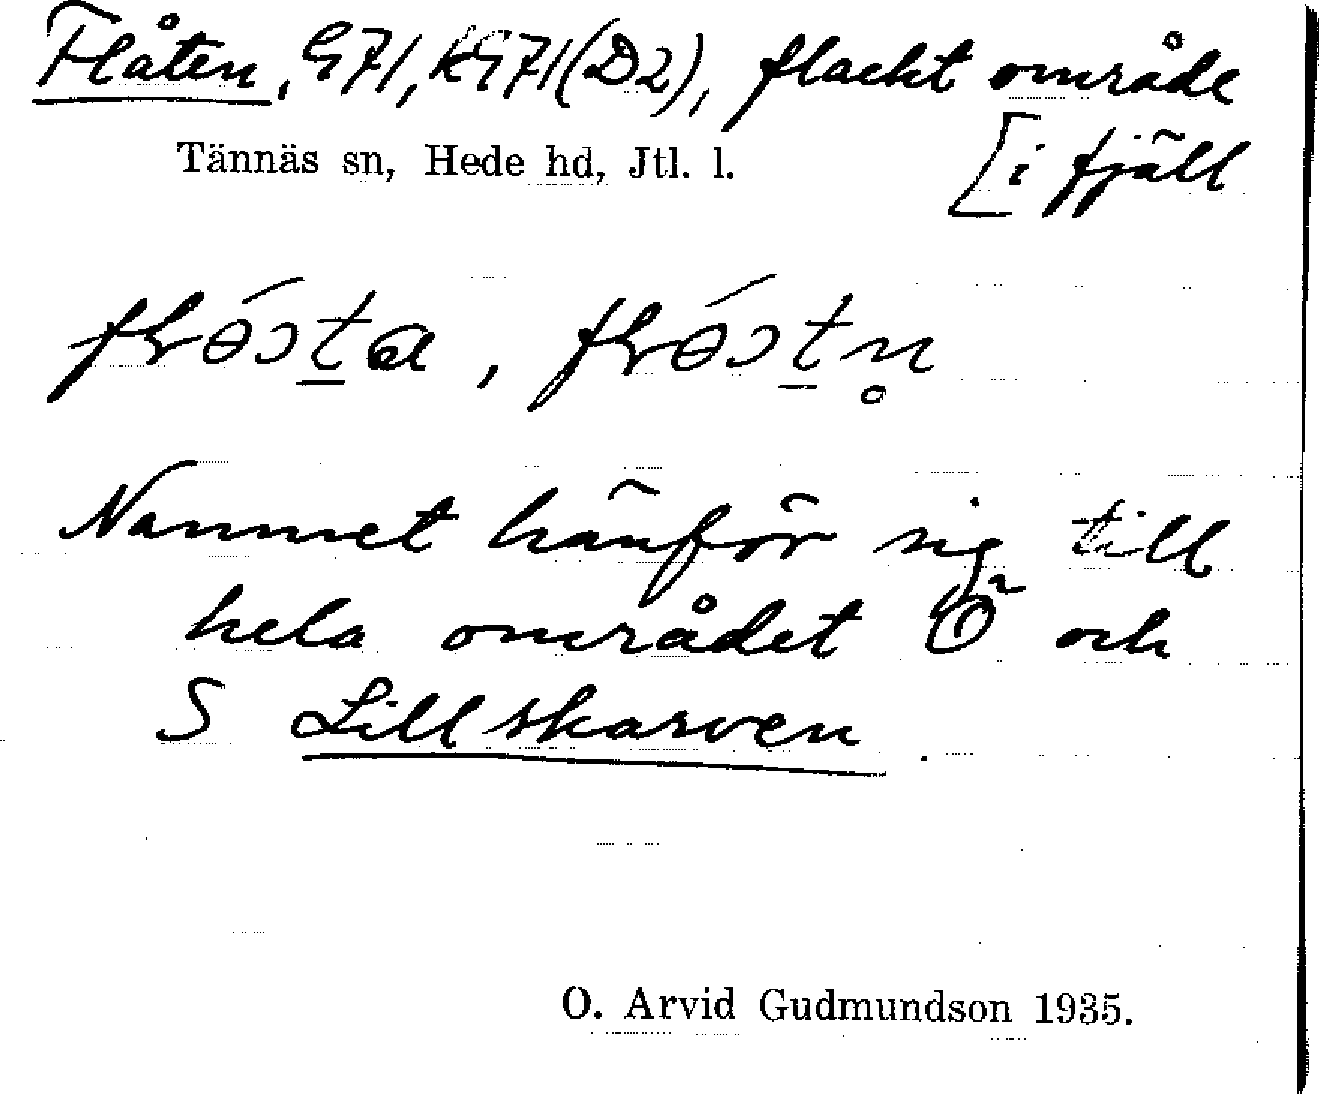 Flåten, G71, kG71(D2), flackt område
[i fjäll
Tännäs sn, Hede hd, Jtl. l.
Namnet hänför sig till
hela området Ö och
S Lillskarven.
O. Arvid Gudmundson 1935.